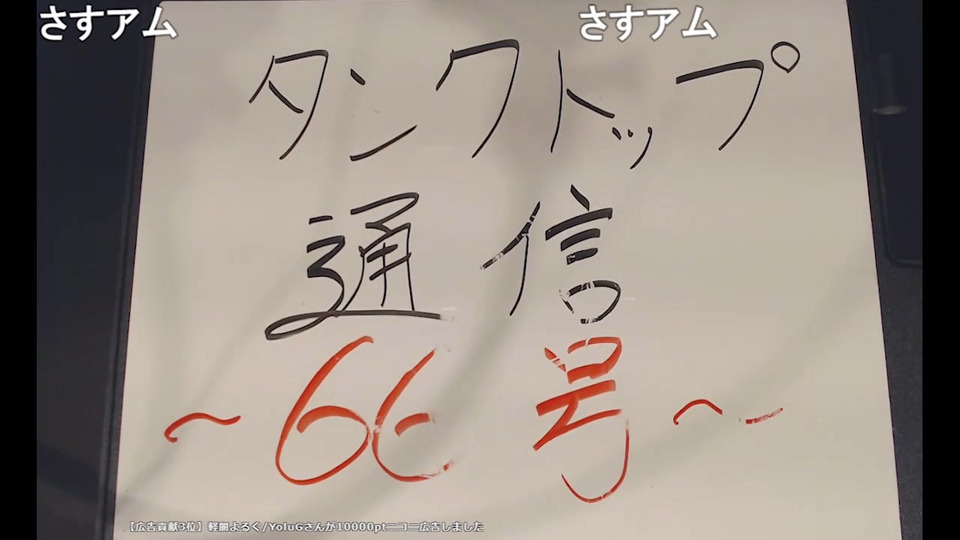 さすアム さすアム
タンクトップ
通信
～66号～
【広告貢献3位】軽闇よるぐ/YoluGさんが10000ptニコニコ広告しました